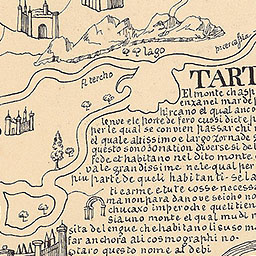 lago
fl tercho
TART
El monte chasp
enxanel mar de p
hircano el qual anco
leuve el e porte de fero cussi dicte p
per le qual se convien passar chi
el quale altissimo e largo zornade s
questo sono 50 nation diverse si de l
fede et habitano nel dito monte
vale grandissime ne le qual per
più parte de queli habitanti. se la
ti earme e tute cosse necess
ma non para da nove seicho no
chucaxo imperoche queli tien
sia uno monte el qual mudi n
sita de lengue che habitano li su so m
far anchora ali cosmographi no-
taro questo nome al debi